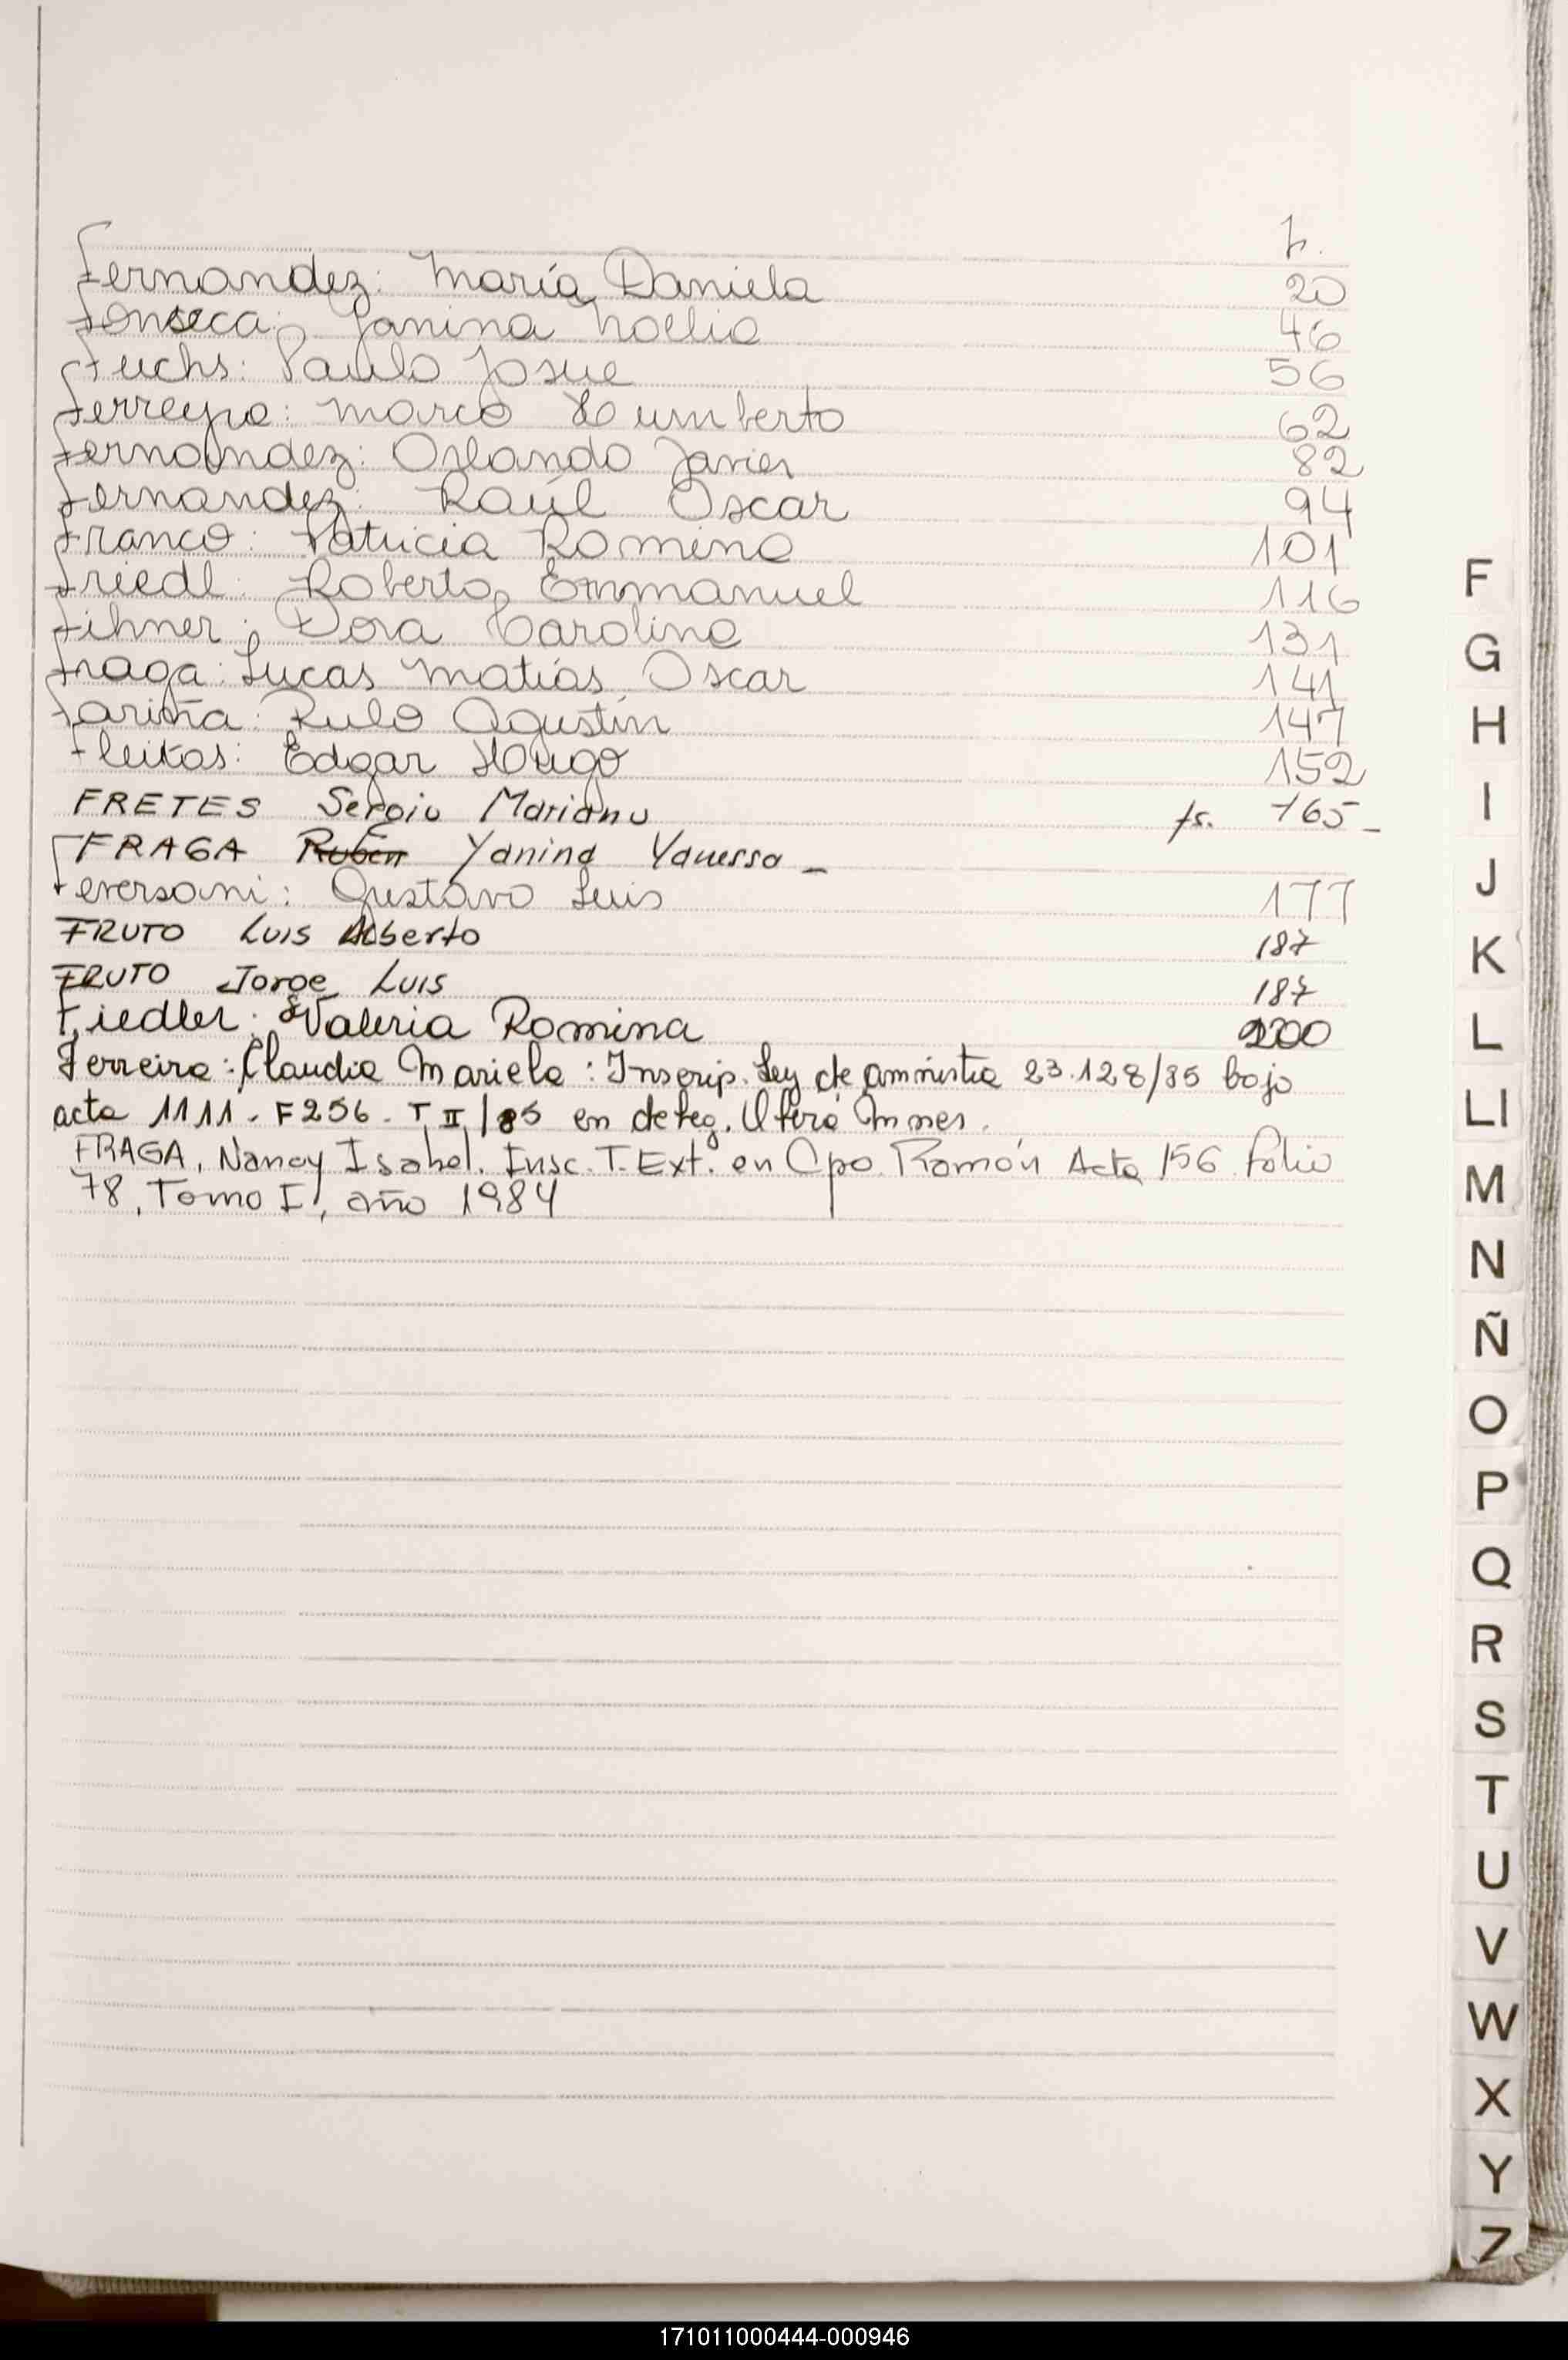 f.
Fernandez: María Daniela 20
Fonseca: Janina Noelia 46
Fuchs: Paulo Josue 56
Ferreyra: Marco Humberto 62
Fernandez: Orlando Javier 82
Fernandez: Raúl Oscar 94
Franco: Patricia Romina 101
Friedl: Roberto Emmanuel 116
Fihner: Dora Carolina 131
Fraga: Lucas Matías Oscar 141
Fariña: Rulo Agustín 147
Fleitas: Edgar Hugo 152
FRETES Sergio Mariano fs. 165-
FRAGA Ruben Yanina Vanessa -
Feversani: Gustavo Luis 177
FRUTO Luis Alberto 187
FRUTO Jorge Luis 187
Fiedler: Valeria Romina 200
Ferreira: Claudia Mariela: Inscrip. Ley de amnistia 23.128/85 bajo
acta 1111 - F256 - T II/85 en deleg. Oberá Mnes.
FRAGA, Nancy Isabel. Insc. T. Ext. en Cpo. Ramón Acta 156 folio
78, Tomo I, año 1984
F
G
H
I
J
K
L
Ll
M
N
Ñ
O
P
Q
R
S
T
U
V
W
X
Y
Z
171011000444-000946